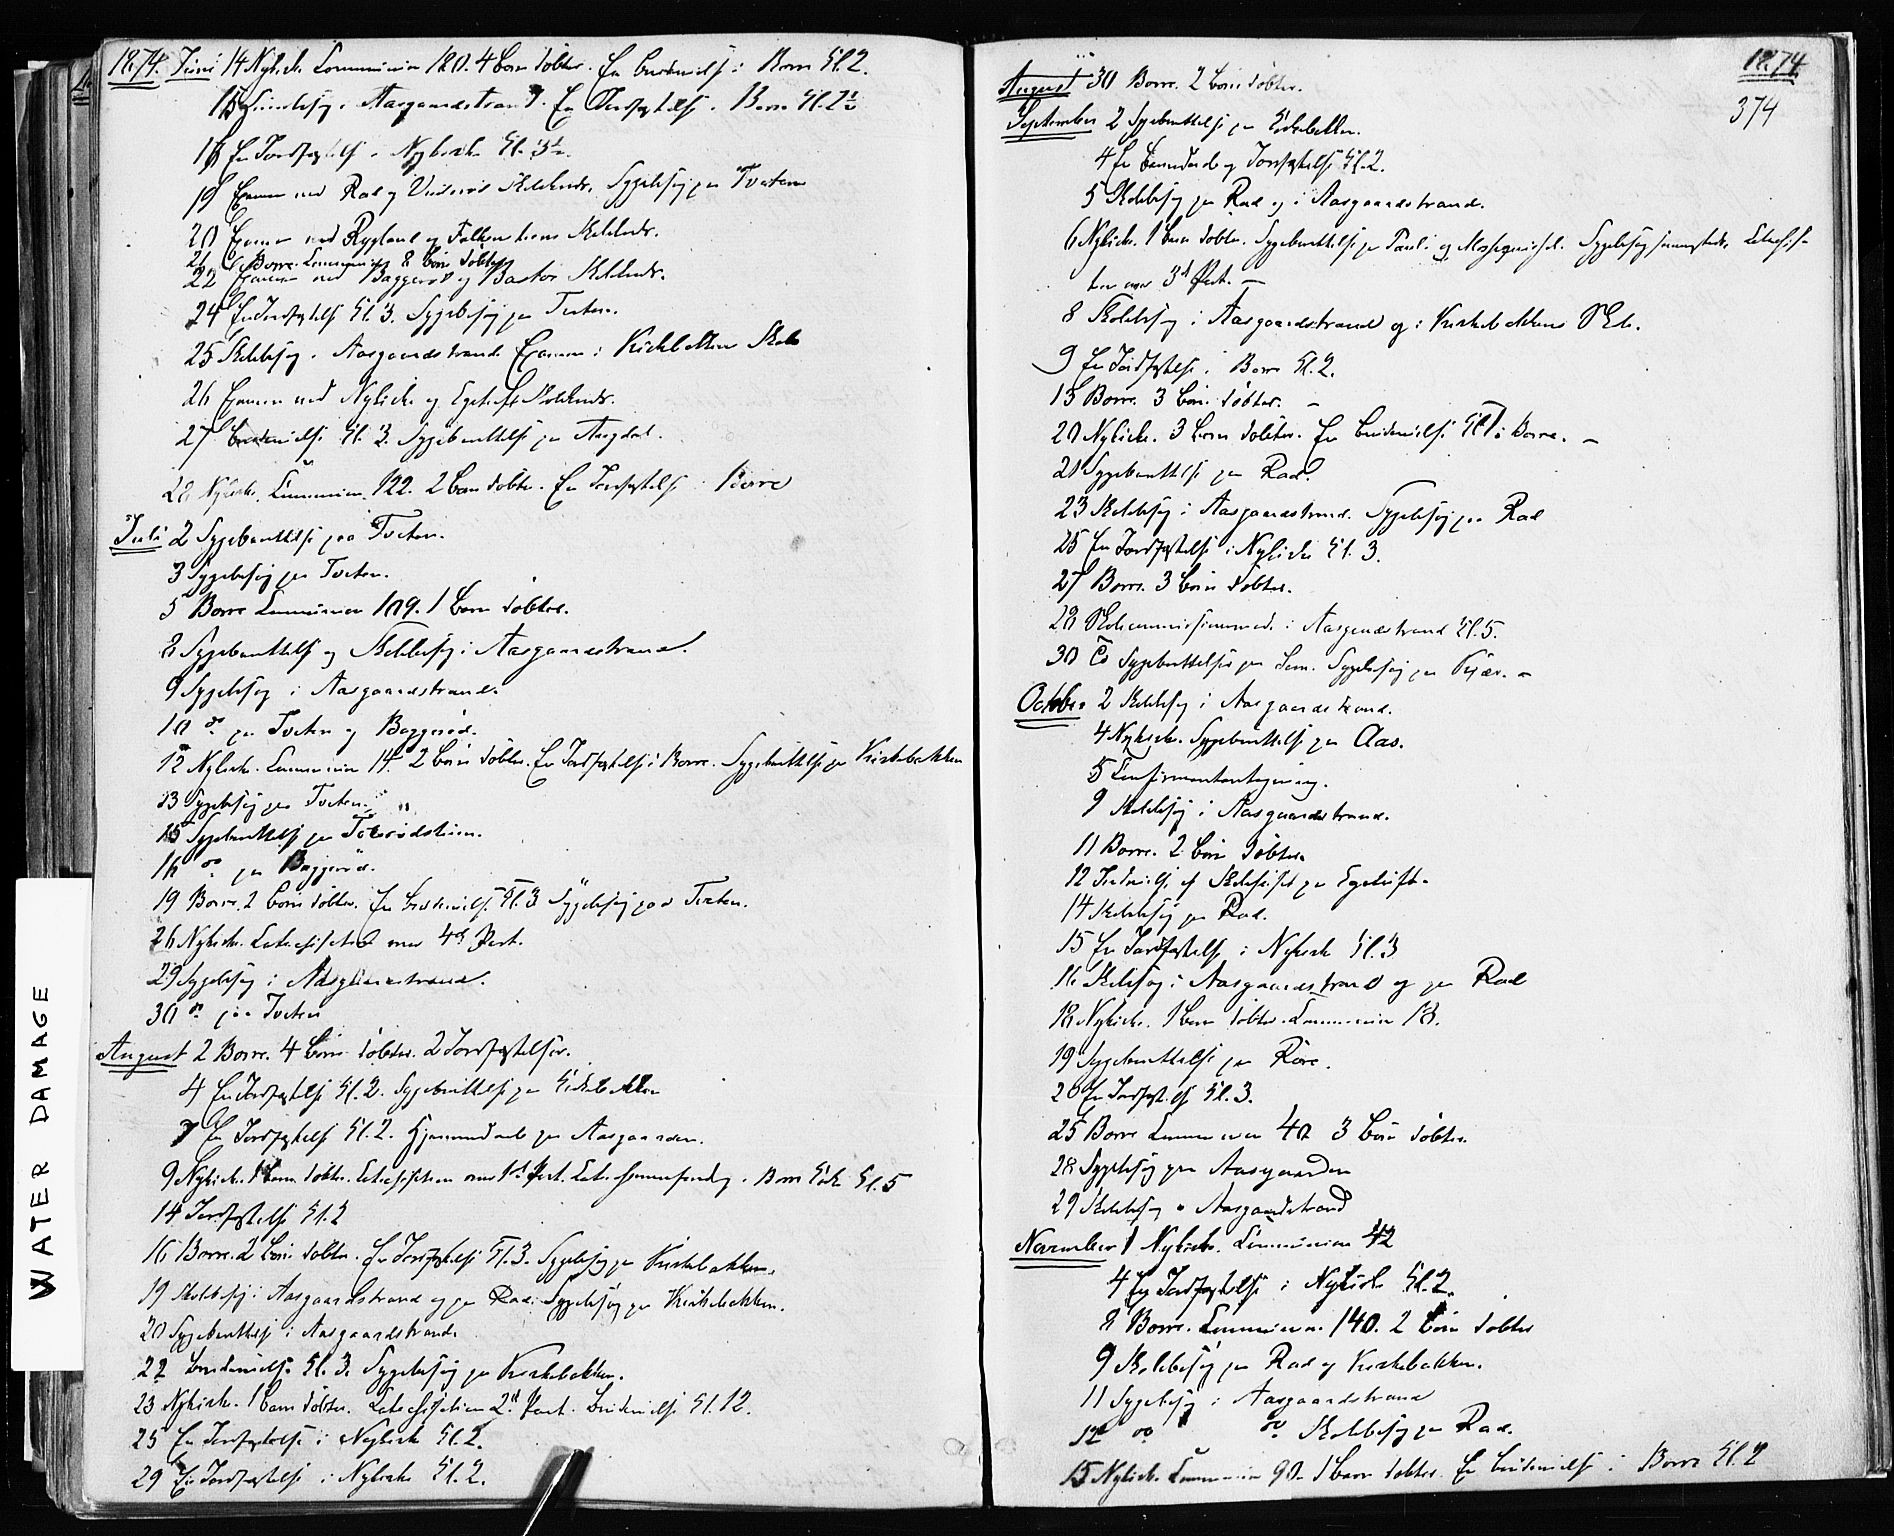 1874. Juni 14 Nykirke. Communion 120. 4 Børn døbte. En Brudevielse i Borre Kl. 2.
15 i Aasgaardstrand. En Jordfæstelse i Borre Kl. 2½
18 En Jordfæstelse i Nykirke Kl. 3½.
19 Examen med Rød og Skolekreds. Sygebesøg paa Tveten
20 Examen med Rygland og Falkensteens Skolekreds.
21 Borre. Communion 8 Børn døbte
22 Examen med Baggerød og Bastø Skolekreds.
24 En Jordfæstelse Kl. 3. Sygebesøg paa Tveten.
25 Skolebesøg i Aasgaardstrand. Examen i Kirkebakken Skole
26 Examen med Nykirke og Skolekreds.
27 Brudevielse Kl. 3. Sygeberettelse paa
28 Nykirke. Communion. 122. 2 Børn døbte. En Jordfæstelse i Borre
Juli 2 Sygeberettelse paa Tveten.
3 Sygebesøg paa Tveten.
5 Borre Communion 109. 1 Barn døbtes.
8 Sygeberettelse og Skolebesøg i Aasgaardstrand.
9 Sygebesøg i Aasgaardstrand.
10 do paa Tveten og Baggerød.
12 Nykirke. Communion 14. 2 Børn døbte. En Jordfæstelse i Borre. Sygeberettelse paa Kirkebakken
13 Sygebesøg paa Tveten.
15 Sygeberettelse paa
16 do paa Baggerød.
19 Borre. 2 Børn døbte. En Brudevielse Kl. 3 Sygebesøg paa Tveten.
26 Nykirke. Catechisation over 4de Part.
29 Sygebesøg i Aasgaardstrand.
30 do paa Tveten
August 2 Borre. 4 Børn døbte. 2 Jordfæstelser.
4 En Jordfæstelse Kl. 2. Sygeberettelse paa
7 En Jordfæstelse Kl. 2. Hjemmedaab paa Aasgaarden.
9 Nykirke. 1 Barn døbtes. Catechisation over 1ste Part. i Borre Kirke Kl. 5
14 Jordfæstelse Kl. 2
16 Borre. 2 Børn døbte. En Jordfæstelse Kl. 3. Sygebesøg paa Kirkebakken.
19 Skolebesøg i Aasgaardstrand og paa Rød. Sygebesøg paa Kirkebakken.
20 Sygeberettelse i Aasgaardstrand.
22 Brudevielse Kl. 3. Sygebesøg paa Kirkebakken.
23 Nykirke. 1 Barn døbtes. Catechisation 2den Part. Brudevielse Kl. 12.
25 En Jordfæstelse i Nykirke Kl. 2.
29 En Jordfæstelse i Nykirke Kl. 2.
WATER DAMAGE
1874
374
August 30 Borre. 2 Børn døbte.
September 2 Sygeberettelse paa
4 En Barnedaab og Jordfæstelse Kl. 2.
5 Skolebesøg paa Rød og i Aasgaardstrand.
6 Nykirke. 1 Barn døbtes. Sygeberettelse paa og Sygebesøg sammesteds. Catechisa-
tion over 3die Part. –
8 Skolebesøg i Aasgaardstrand og i Kirkebakkens Skole.
9 En Jordfæstelse i Borre Kl. 2.
13 Borre. 3 Børn døbte. –
20 Nykirke. 3 Børn døbte. En Brudevielse Kl. 1 i Borre. –
21 Sygeberettelse paa Rød.
23 Skolebesøg i Aasgaardstrand. Sygebesøg paa Rød
25 En Jordfæstelse i Nykirke Kl. 3.
27 Borre. 3 Børn døbte.
28 Skolecommissionsmøde i Aasgaardstrand Kl. 5.
30 To Sygeberettelser paa Sem. Sygebesøg paa Kjær. –
October 2 Skolebesøg i Aasgaardstrand.
4 Nykirke. Sygeberettelse paa Aas.
5 Confirmantantegning.
9 Skolebesøg i Aasgaardstrand.
11 Borre. 2 Børn døbte.
12 Indvielse af Skolehuset paa
14 Skolebesøg paa Rød.
15 En Jordfæstelse i Nykirke Kl. 3
16 Skolebesøg i Aasgaardstrand og paa Rød
18 Nykirke. 1 Barn døbtes. Communion 18.
19 Sygeberettelse paa Røre.
20 En Jordfæstelse Kl. 3.
25 Borre Communion 40 3 Børn døbte.
28 Sygebesøg paa Aasgaarden
29 Skolebesøg i Aasgaardstrand
November 1 Nykirke. Communion 42
4 En Jordfæstelse i Nykirke Kl. 2.
8 Borre. Communion. 140. 2 Børn døbte
9 Skolebesøg paa Rød og Kirkebakken.
11 Sygebesøg i Aasgaardstrand
12 do do Skolebesøg paa Rød.
15 Nykirke. Communion 90. 1 Barn døbtes. En Brudevielse i Borre Kl. 2